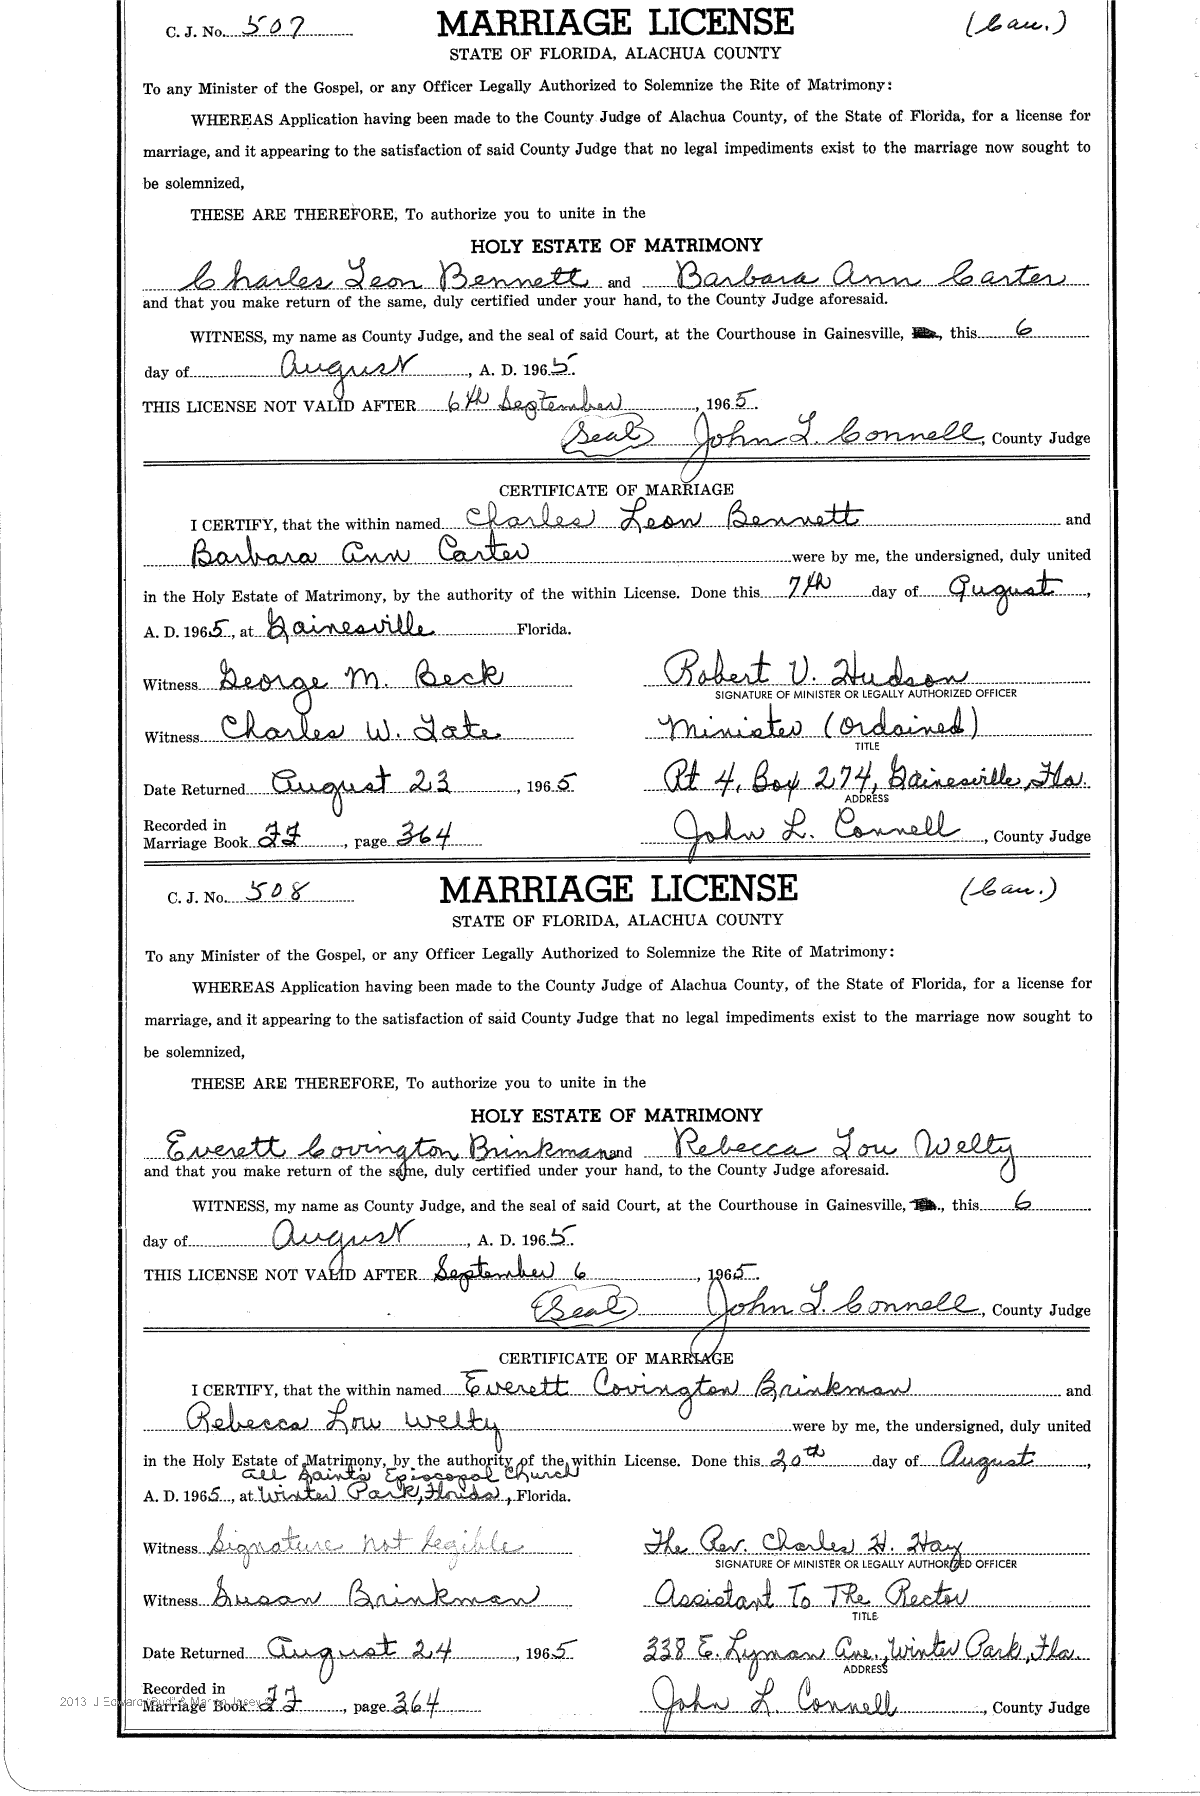 C. J. No. 507 MARRIAGE LICENSE (Cau.)
STATE OF FLORIDA, ALACHUA COUNTY
To any Minister of the Gospel, or any Officer Legally Authorized to Solemnize the Rite of Matrimony:
WHEREAS Application having been made to the County Judge of Alachua County, of the State of Florida, for a license for
marriage, and it appearing to the satisfaction of said County Judge that no legal impediments exist to the marriage now sought to
be solemnized,
THESE ARE THEREFORE, To authorize you to unite in the
HOLY ESTATE OF MATRIMONY
Charles Leon Bennett and Barbara Ann Carter
and that you make return of the same, duly certified under your hand, to the County Judge aforesaid.
WITNESS, my name as County Judge, and the seal of said Court, at the Courthouse in Gainesville, this 6
day of August, A. D. 1965.
THIS LICENSE NOT VALID AFTER 6th September, 1965.
(Seal) John L. Connell, County Judge
CERTIFICATE OF MARRIAGE
I CERTIFY, that the within named Charles Leon Bennett and
Barbara Ann Carter were by me, the undersigned, duly united
in the Holy Estate of Matrimony, by the authority of the within License. Done this 7th day of August,
A. D. 1965, at Gainesville Florida.
Witness George M. Beck Robert V. Hudson
SIGNATURE OF MINISTER OR LEGALLY AUTHORIZED OFFICER
Witness Charles W. Tate Minister (Ordained)
TITLE
Date Returned August 23, 1965 Rt 4, Box 274, Gainesville, Fla.
ADDRESS
Recorded in
Marriage Book 22, page 364 John L. Connell, County Judge
C. J. No. 508 MARRIAGE LICENSE (Cau.)
STATE OF FLORIDA, ALACHUA COUNTY
To any Minister of the Gospel, or any Officer Legally Authorized to Solemnize the Rite of Matrimony:
WHEREAS Application having been made to the County Judge of Alachua County, of the State of Florida, for a license for
marriage, and it appearing to the satisfaction of said County Judge that no legal impediments exist to the marriage now sought to
be solemnized,
THESE ARE THEREFORE, To authorize you to unite in the
HOLY ESTATE OF MATRIMONY
Everett Covington Brinkman and Rebecca Lou Welty
and that you make return of the same, duly certified under your hand, to the County Judge aforesaid.
WITNESS, my name as County Judge, and the seal of said Court, at the Courthouse in Gainesville, this 6
day of August, A. D. 1965.
THIS LICENSE NOT VALID AFTER September 6, 1965.
(Seal) John L. Connell, County Judge
CERTIFICATE OF MARRIAGE
I CERTIFY, that the within named Everett Covington Brinkman and
Rebecca Lou Welty were by me, the undersigned, duly united
in the Holy Estate of Matrimony, by the authority of the within License. Done this 20th day of August,
All Saints Episcopal Church
A. D. 1965, at Winter Park, Florida, Florida.
Witness Signature not legible The Rev. Charles H. Hay
SIGNATURE OF MINISTER OR LEGALLY AUTHORIZED OFFICER
Witness Susan Brinkman Assistant To The Rector
TITLE
Date Returned August 24, 1965 338 E. Lyman Ave., Winter Park, Fla.
ADDRESS
Recorded in
Marriage Book 22, page 364 John L. Connell, County Judge
2013 J Edward